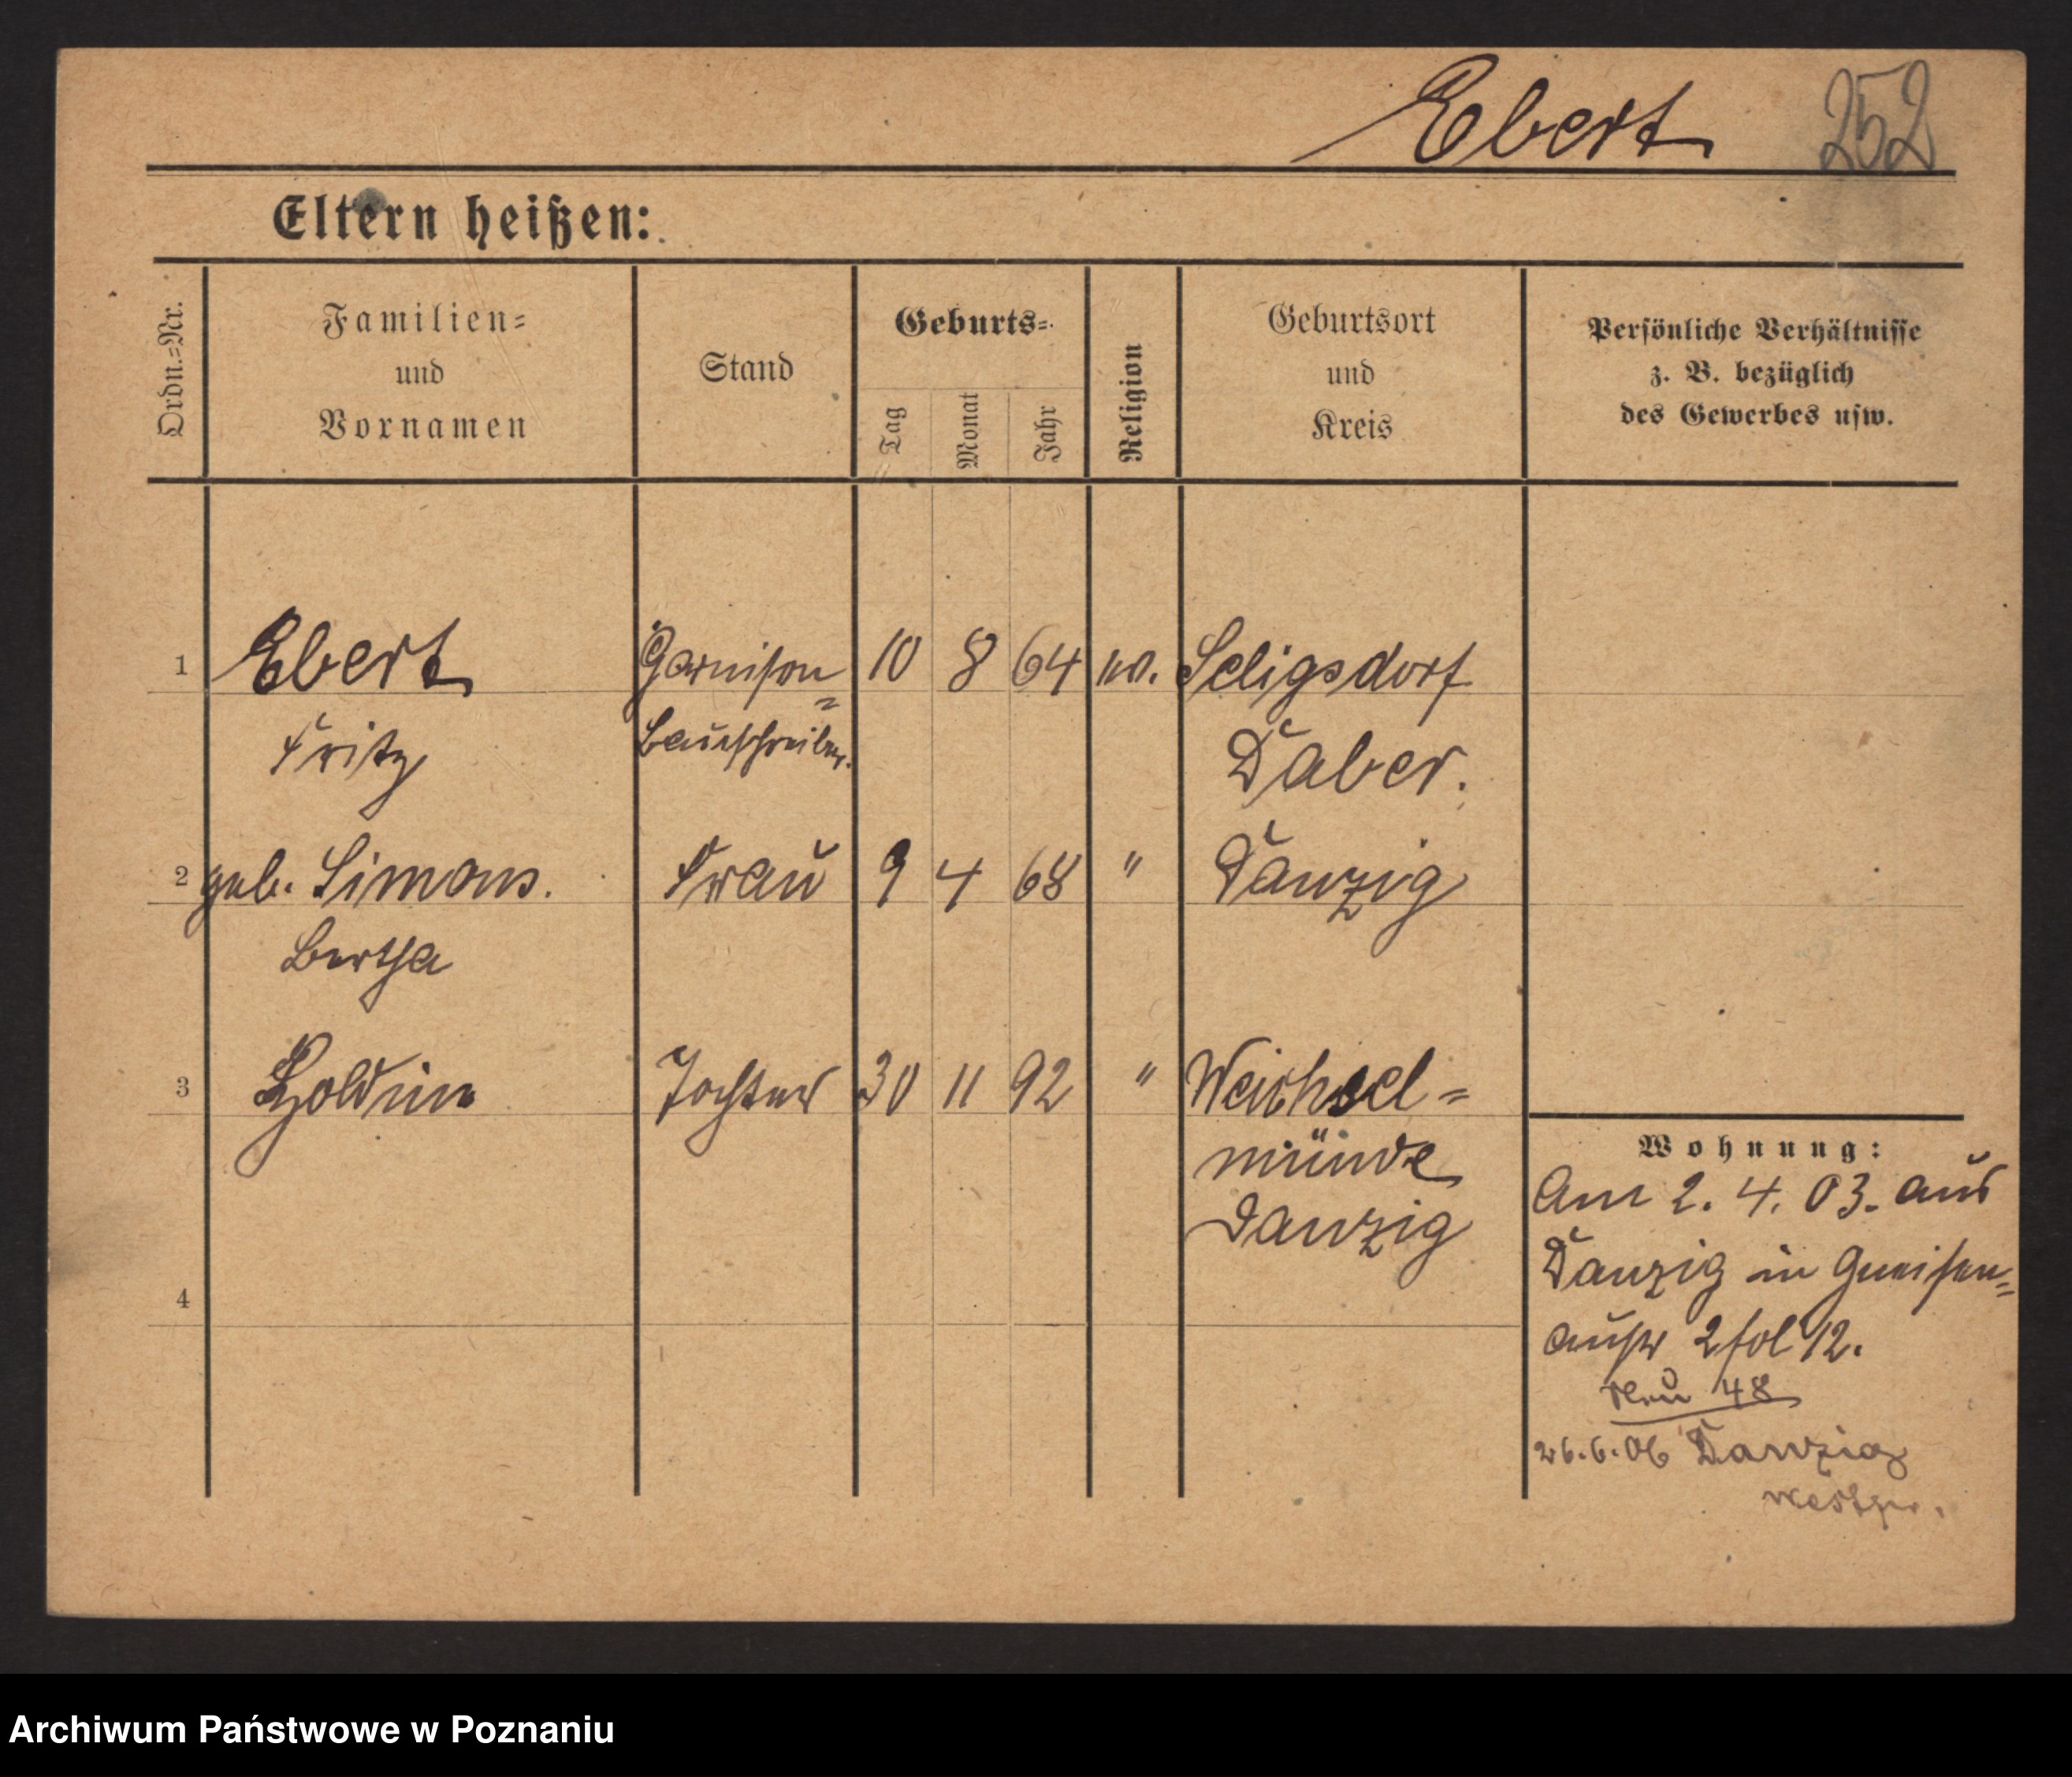 Ebert 252
Eltern heißen:
Ordn.=Nr.
Familien=
und
Vornamen
Stand
Geburts=
Tag
Monat
Jahr
Religion
Geburtsort
und
Kreis
Persönliche Verhältnisse
z. B. bezüglich
des Gewerbes usw.
1 Ebert Garnison= 10 8 64 ev. Seligsdorf
Fritz Bauschreiber. Daber.
2 geb. Simons. Frau 9 4 68 " Danzig
Bertha
3 Tochter 30 11 92 " Weichsel=
münde
Danzig
4
Wohnung:
Am 2. 4. 03. aus
Danzig in Gneisen=
austr 2 fol 12.
Neu 48
26.6.06 Danzig
Westpr.
Archiwum Państwowe w Poznaniu